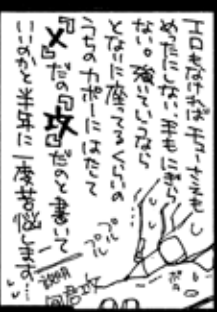 エロもなければチューさえもし
めったにしない、手もにぎら
ない。強いていうなら
となりに座ってるくらいの
うちのカポーにはたして
『×』だの『攻』だのと書いて
いいのかと半年に一度苦悩します…
プル
プル
攻